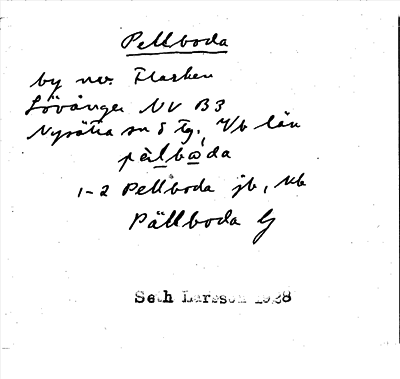 Pellboda
by nv. Flarken
Lövånger NV B3
Nysätra sn o tg, Vb län
pèlbơda
1-2 Pellboda jb, kb
Pällboda G
Seth Larsson 1928